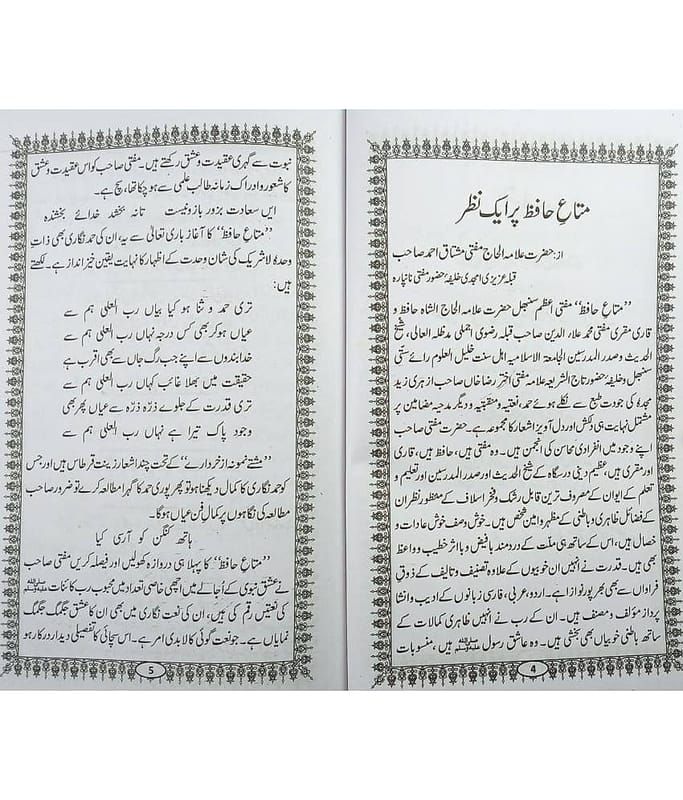 متاعِ حافظ پر ایک نظر
از: حضرت علامہ الحاج مفتی مشتاق احمد صاحب
قبلہ عزیزی امجدی خلیفۂ حضور مفتی نانپارہ
”متاع حافظ“ مفتی اعظم سنبھل حضرت علامہ الحاج الشاہ حافظ و
قاری مقری مفتی محمد علاء الدین صاحب قبلہ رضوی اجملی مدظلہ العالی، شیخ
الحدیث وصدر المدرسین الجامعۃ الاسلامیہ اہل سنت خلیل العلوم رائے ستی
سنبھل وخلیفۂ حضور تاج الشریعہ علامہ مفتی اختر رضا خاں صاحب ازہری زید
مجدہٗ کی جودت طبع سے نکلے ہوئے حمدیہ، نعتیہ ومنقبتیہ ودیگر مدحیہ مضامین پر
مشتمل نہایت ہی دلکش اور دل آویز اشعار کا مجموعہ ہے۔ حضرت مفتی صاحب
اپنے وجود میں انفرادی محاسن کی انجمن ہیں۔ وہ مفتی ہیں، حافظ ہیں، قاری
اور مقری ہیں، عظیم دینی درسگاہ کے شیخ الحدیث اور صدر المدرسین اور تعلیم و
تعلم کے ایوان کے مصروف ترین قابل رشک و فخر اسلاف کے منظور نظر ان
کے فضائل ظاہری وباطنی کے مظہر و امین شخص ہیں۔ خوش وصف خوش عادات و
خصال ہیں، اس کے ساتھ ہی ملّت کے دردمند بافیض وبااثر خطیب وواعظ
بھی ہیں۔ قدرت نے انہیں ان خوبیوں کے علاوہ تصنیف وتالیف کے ذوقِ
فراواں سے بھی بھرپور نوازا ہے۔ اردو، عربی، فارسی زبانوں کے ادیب وانشا
پرداز مؤلف ومصنف ہیں۔ ان کے رب نے انہیں ظاہری کمالات کے
ساتھ باطنی خوبیاں بھی بخشی ہیں۔ وہ عاشق رسول ﷺ ہیں، منسوبات
4
نبوت سے گہری عقیدت وعشق رکھتے ہیں۔ مفتی صاحب کو اس عقیدت وعشق
کا شعور وادراک زمانہ طالب علمی سے ہو چکا تھا، سچ ہے۔
ایں سعادت بزور بازو نیست تا نہ بخشد خدائے بخشندہ
”متاع حافظ“ کا آغاز باری تعالیٰ سے یہ، ان کی حمد نگاری بھی ذات
وحدہٗ لاشریک کی شان وحدت کے اظہار کا نہایت یقین خیز انداز ہے۔ لکھتے
ہیں:
تری حمد و ثنا ہو کیا بیاں رب العلیٰ ہم سے
عیاں ہو کر بھی کس درجہ نہاں رب العلیٰ ہم سے
خدا بندوں سے اپنے جب رگ جاں سے بھی اقرب ہے
حقیقت میں بھلا غائب کہاں رب العلیٰ ہم سے
تری قدرت کے جلوے ذرّہ ذرّہ سے عیاں پھر بھی
وجود پاک تیرا ہے نہاں رب العلیٰ ہم سے
”مشتے نمونہ از خردارے“ کے تحت چند اشعار زینت قرطاس ہیں اور جس
کو حمد نگاری کا کمال دیکھنا ہو تو پھر پوری حمد کا گہرا مطالعہ کرے تو ضرور صاحب
مطالعہ کی نگاہوں پر کمال فن عیاں ہوگا۔
ہاتھ کنگن کو آرسی کیا
”متاع حافظ“ کا پہلا ہی دروازہ کھولیں اور فیصلہ کریں مفتی صاحب
نے عشق نبوی کے اُجالے میں اچھی خاصی تعداد میں محبوب رب کائنات ﷺ
کی نعتیں رقم کی ہیں، ان کی نعت نگاری میں بھی ان کا عشق جگمگ جگمگ
نمایاں ہے۔ جو نعت گوئی کا لابدی امر ہے۔ اس سچائی کا تفصیلی دیدار درکار ہو
5